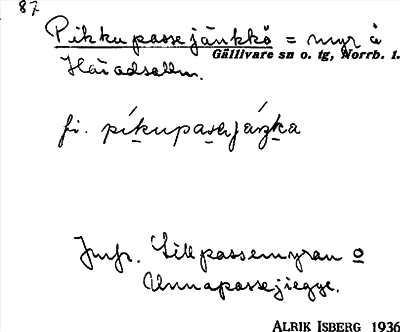 87
Pikkupassejänkkö = myr å
Gällivare sn o. tg, Norrb. l.
fi. píkupasejáŋka
Jmfr. Lillpassemyran o
Unnapassejiegge.
ALRIK ISBERG 1936